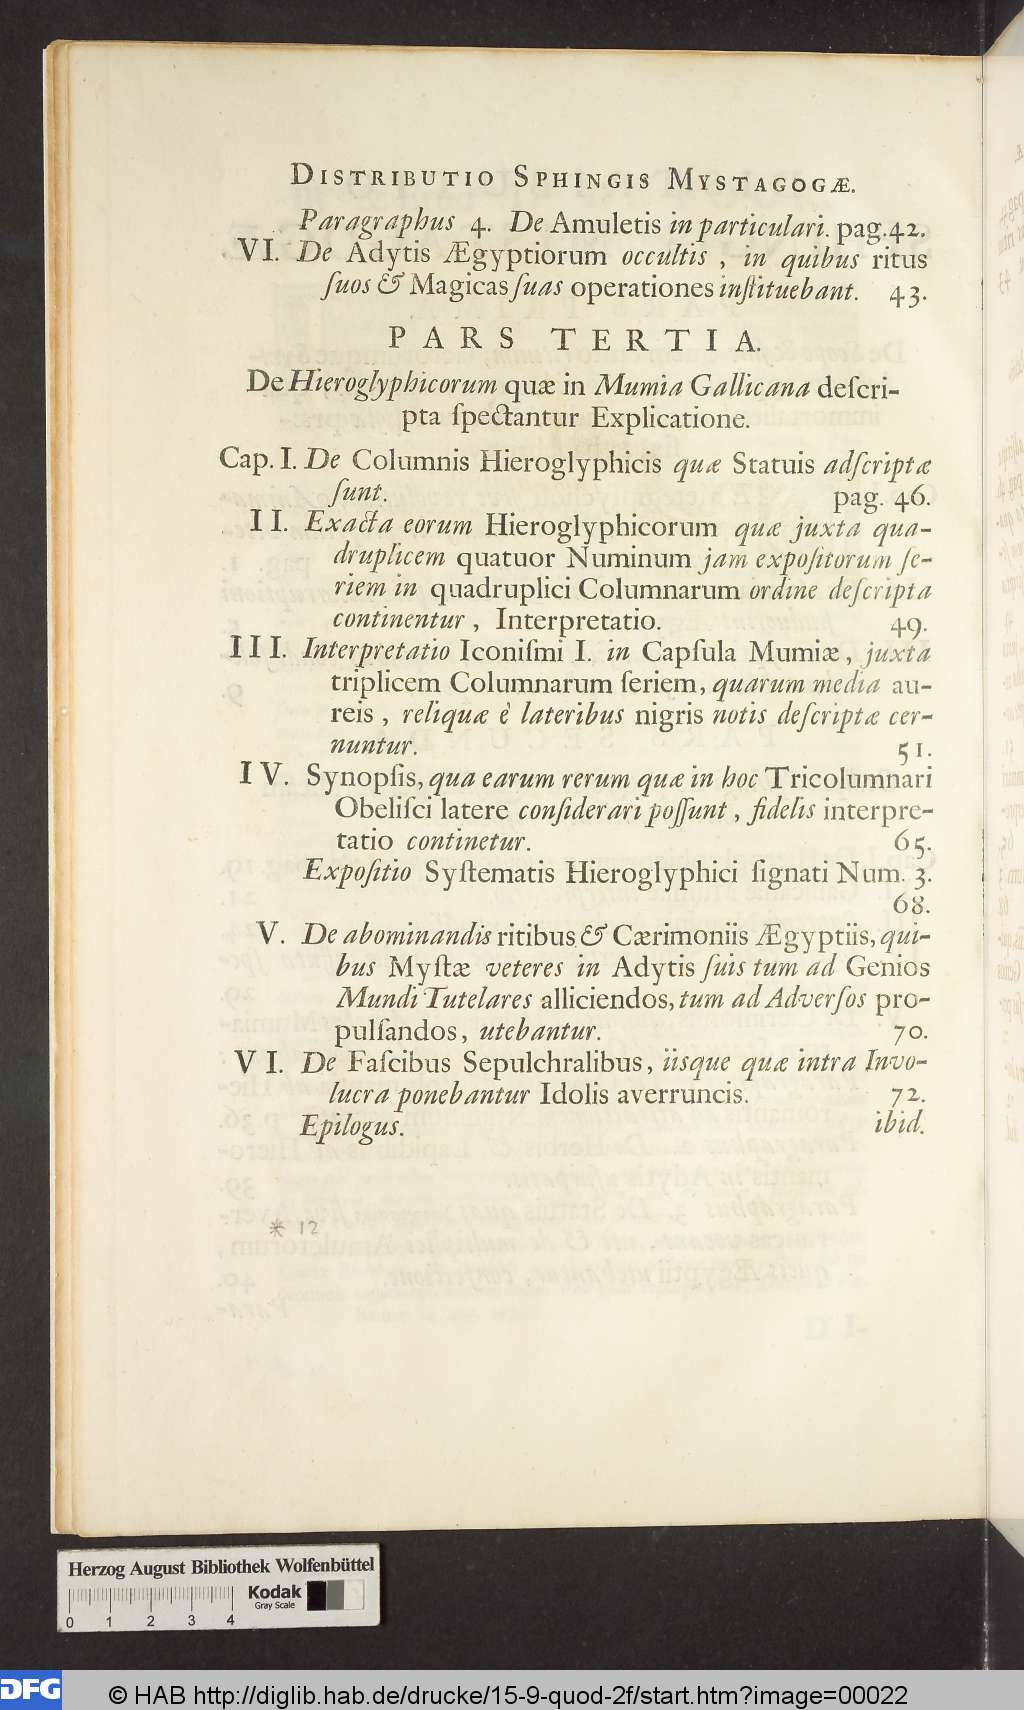 DISTRIBUTIO SPHINGIS MYSTAGOGÆ.
Paragraphus 4. De Amuletis in particulari. pag.42.
VI. De Adytis Ægyptiorum occultis, in quibus ritus
ſuos & Magicas ſuas operationes inſtituebant. 43.
PARS TERTIA.
De Hieroglyphicorum quæ in Mumia Gallicana deſcri-
pta ſpectantur Explicatione.
Cap. I. De Columnis Hieroglyphicis quæ Statuis adſcriptæ
ſunt. pag. 46.
II. Exacta eorum Hieroglyphicorum quæ juxta qua-
druplicem quatuor Numinum jam expoſitorum ſe-
riem in quadruplici Columnarum ordine deſcripta
continentur, Interpretatio. 49.
III. Interpretatio Iconiſmi I. in Capſula Mumiæ, juxta
triplicem Columnarum ſeriem, quarum media au-
reis, reliquæ è lateribus nigris notis deſcriptæ cer-
nuntur. 51.
IV. Synopſis, qua earum rerum quæ in hoc Tricolumnari
Obeliſci latere conſiderari poſſunt, fidelis interpre-
tatio continetur. 65.
Expoſitio Syſtematis Hieroglyphici ſignati Num. 3.
68.
V. De abominandis ritibus & Cærimoniis Ægyptiis, qui-
bus Myſtæ veteres in Adytis ſuis tum ad Genios
Mundi Tutelares alliciendos, tum ad Adverſos pro-
pulſandos, utebantur. 70.
VI. De Faſcibus Sepulchralibus, iisque quæ intra Invo-
lucra ponebantur Idolis averruncis. 72.
Epilogus. ibid.
* 12
Herzog August Bibliothek Wolfenbüttel
Kodak
Gray Scale
0 1 2 3 4
DFG
© HAB http://diglib.hab.de/drucke/15-9-quod-2f/start.htm?image=00022